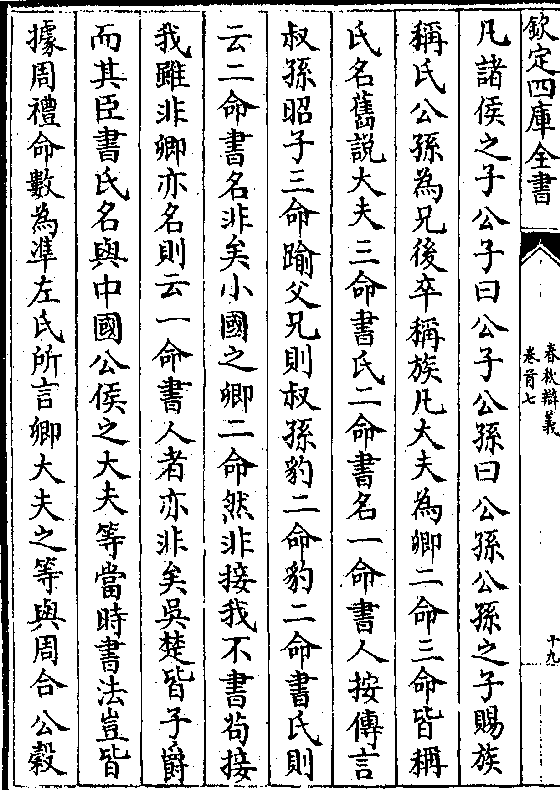 欽定四庫全書
春秋辯義
卷首七
十九
凡諸侯之子公子曰公子公孫曰公孫公孫之子賜族
稱氏公孫為兄後卒稱族凡大夫為卿二命三命皆稱
氏名舊說大夫三命書氏二命書名一命書人按傳言
叔孫昭子三命踰父兄則叔孫豹二命豹二命書氏則
云二命書名非矣小國之卿二命然非接我不書茍接
我雖非卿亦名則云一命書人者亦非矣吳楚皆子爵
而其臣書氏名與中國公侯之大夫等當時書法豈皆
據周禮命數為準左氏所言卿大夫之等與周合公穀